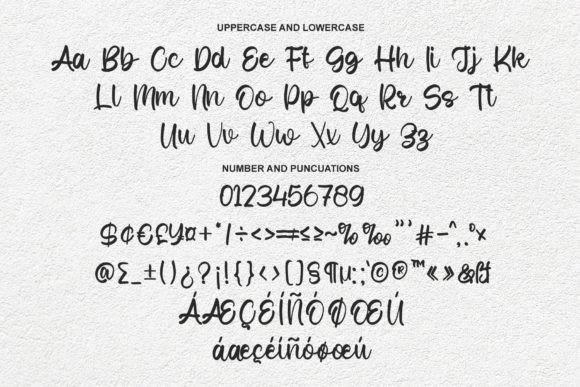 UPPERCASE AND LOWERCASE
Aa Bb Cc Dd Ee Ff Gg Hh Ii Jj Kk
Ll Mm Nn Oo Pp Qq Rr Ss Tt
Uu Vv Ww Xx Yy Zz
NUMBER AND PUNCUATIONS
0123456789
$¢€£¥¤+*/÷<>=≠≤≥~%‰"'#-^,.°×
@Σ_±()¿?¡!{}‹›[]§¶µ:;'©®™«»&
ÁÆÇÉÍÑÓØŒÚ
áæçéíñóøœú